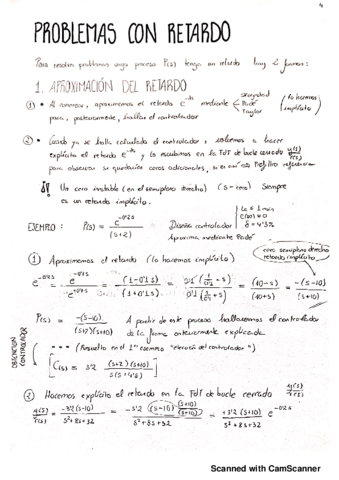 PROBLEMAS CON RETARDO
Para resolver problemas cuyo proceso P(s) tenga un retardo hay 2 formas:
1. APROXIMACIÓN DEL RETARDO
① • Al comenzar, aproximamos el retardo mediante Padé Taylor (lo hacemos implícito)
para, posteriormente, hallar el controlador
② • Cuando ya se halla calculado el controlador, volvemos a hacer
explícito el retardo y lo escribimos en la FdT de bucle cerrado Y(s)/R(s)
para observar si quedarían ceros adicionales,
Un cero inestable (en el semiplano derecho) (s - cero) Siempre
es un retardo implícito.
EJEMPLO: P(s) = e^-0'2s / (s+2) Diseña controlador
Aproxima mediante Padé
① Aproximamos el retardo (lo hacemos implícito)
cero semiplano derecho
retardo implícito
e^-0'2s = (1-0'1s) / (1+0'1s) = (10-s) / (10+s) = -(s-10) / (s+10)
P(s) = -(s-10) / (s+2)(s+10) A partir de este proceso hallaremos el controlador
de la forma anteriormente explicada
OBTENCIÓN CONTROLADOR
(Resuelto en el 1er ejemplo "elección del controlador")
[C(s) = 3'2 (s+2)(s+10) / s(s+4'8)]
② Hacemos explícito el retardo en la FdT de bucle cerrado Y(s)/R(s)
Y(s)/R(s) = -3'2(s-10) / s²+8s+32 = -3'2 (s-10) (s+10)/(s+10) / s²+8s+32 = +3'2 (s+10) / s²+8s+32 e^-0'2s
Scanned with CamScanner